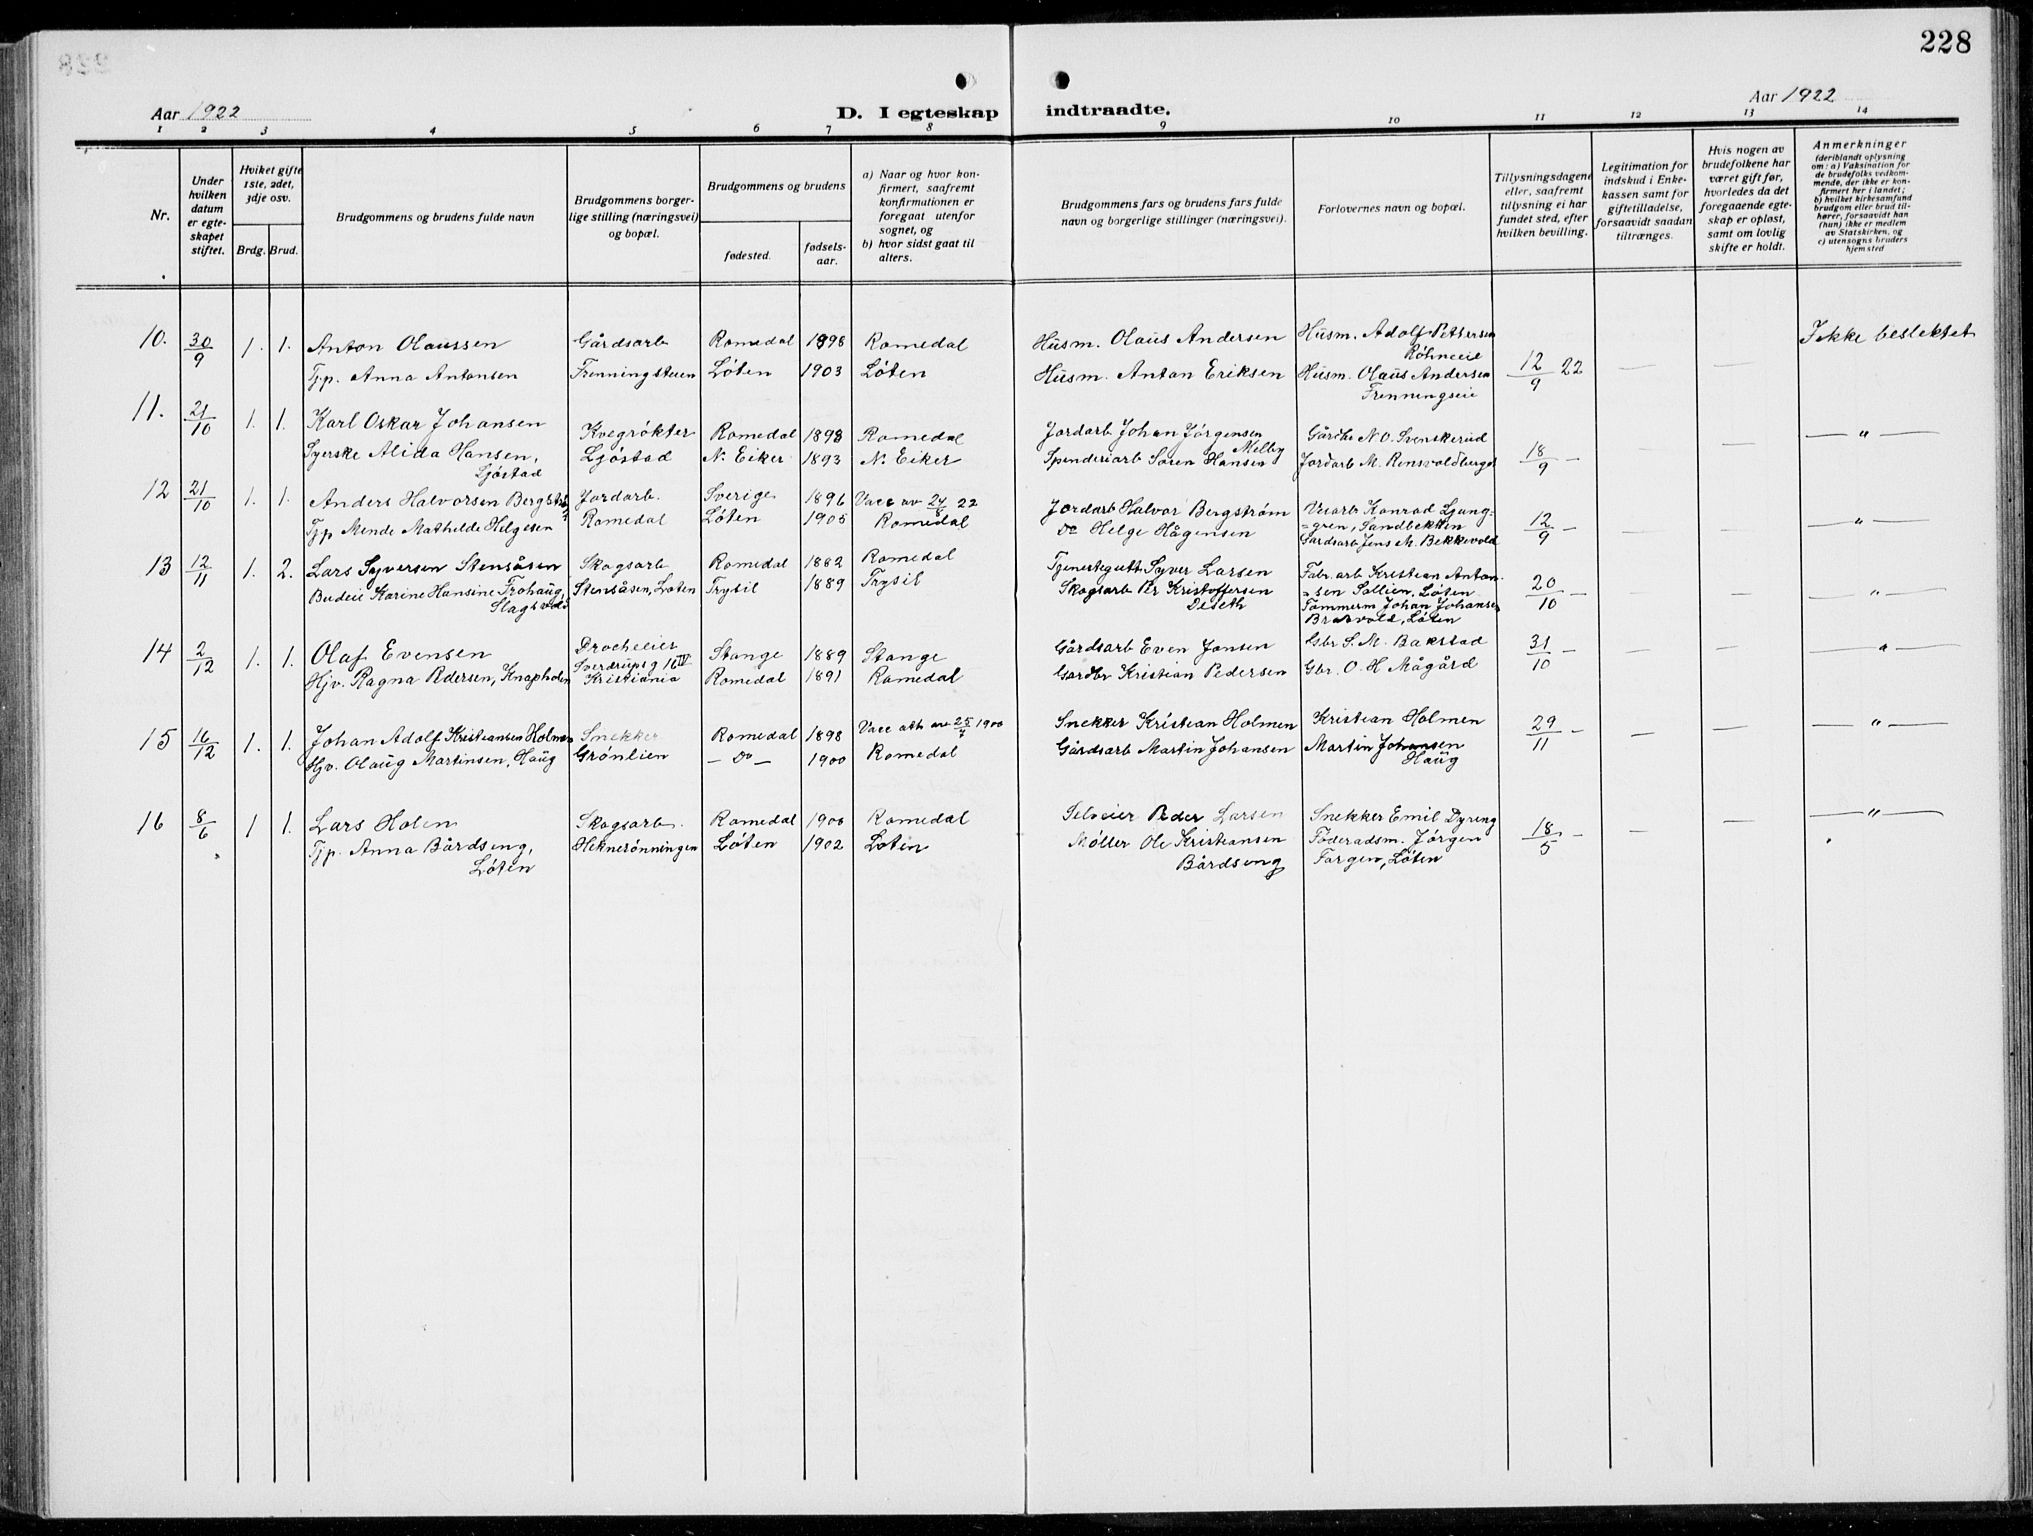 228
Aar 1922
D. I egteskap
indtraadte.
Aar 1922
1 2 3 4 5 6 7 8 9 10 11 12 13 14
Nr.
Under hvilken datum er egte-skapet stiftet.
Hviket gifte 1ste, 2det, 3dje osv.
Brdg. Brud.
Brudgommens og brudens fulde navn
Brudgommens borger-lige stilling (næringsvei) og bopæl.
Brudgommens og brudens
fødested.
fødsels-aar.
a) Naar og hvor kon-firmert, saafremt konfirmationen er foregaat utenfor sognet, og
b) hvor sidst gaat til alters.
Brudgommens fars og brudens fars fulde navn og borgerlige stillinger (næringsvei).
Forlovernes navn og bopæl.
Tillysningsdagene eller, saafremt tillysning ei har fundet sted, efter hvilken bevilling.
Legitimation for indskud i Enke-kassen samt for giftetilladelse, forsaavidt saadan tiltrænges.
Hvis nogen av brudefolkene har været gift før, hvorledes da det foregaaende egte-skap er opløst, samt om lovlig skifte er holdt.
Anmerkninger
(deriblandt oplysning om: a) Vaksination for de brudefolks vedkom-mende, der ikke er kon-firmert her i landet; b) hvilket kirkesamfund brudgom eller brud til-hører, forsaavidt han (hun) ikke er medlem av Statskirken, og c) utensogns bruders hjemsted
10. 30/9 1. 1. Anton Olaussen Gårdsarb Romedal 1898 Romedal Husm. Olaus Andersen Husm. Adolf Pettersen Ikke beslektet
Røhneeie
Tjp. Anna Antonsen Frenningsteien Løten 1903 Løten Husm. Anton Eriksen Husm. Olaus Andersen 12/9 22 — —
Frenningseie
11. 21/10 1. 1. Karl Oskar Johansen Kvegrøkter Romedal 1898 Romedal Jordarb Johan Jørgensen Gårdbr N.O. Svenskerud — " —
Melby
Syerske Alida Hansen, Ljøstad N. Eiker 1893 N. Eiker Spenderiarb Søren Hansen Jordarb M. 18/9 — —
Ljøstad
12 21/10 1. 1. Anders Halvorsen Jordarb. Sverige 1896 Vacc av 24/8 22 Jordarb Halvor Bergstrøm Konrad Ljung= — " —
=gren, Sandbekken
Tjp Mende Mathilde Helgesen Romedal Løten 1905 Romedal Do Helge Hågensen Gårdsarb Jens M. Bekkevold 12/9 — — —
13 12/11 1. 2. Lars Syversen Stensåsen Skogsarb Romedal 1882 Romedal Tjenestegutt Syver Larsen Fabr. arb Kristian Anton=
=sen Sollien, Løten
Budeie Karine Hansine Frohaug, Stensåsen, Løten Trysil 1889 Trysil Skogsarb Per Kristoffersen Tømmerm Johan Johansen 20/10 — — — — " —
Slagsvold Deseth Løten
14 2/12 1. 1. Olaf Evensen Drocheeier Stange 1889 Stange Gårdsarb Even Jonsen Gbr. S. M. Bakstad 31/10 — — — — " —
Sverdrupsg 16 IV
Hjv. Ragna Pedersen, Knapholen Kristiania Romedal 1891 Romedal Gårdbr Kristian Pedersen Gbr. O. H Mågård
15 16/12 1. 1. Johan Adolf Kristiansen Holmen Snekker Romedal 1898 Vacc att av 25/7 1900 Snekker Kristian Holmen Kristian Holmen 29/11 — — — — " —
Hjv. Olaug Martinsen, Haug Grønlien — Do — 1900 Romedal Gårdsarb Martin Johansen Martin Johansen
Haug
16 8/6 1 1. Lars Holen Skogsarb. Romedal 1900 Romedal Selveier Peder Larsen Snekker Emil Dyreng — " —
Tjp. Anna Bårdseng, Heknerønningen Løten 1902 Løten Møller Ole Kristiansen Føderadsm. Jørgen 18/5 — — —
Løten Bårdseng Torgen, Løten